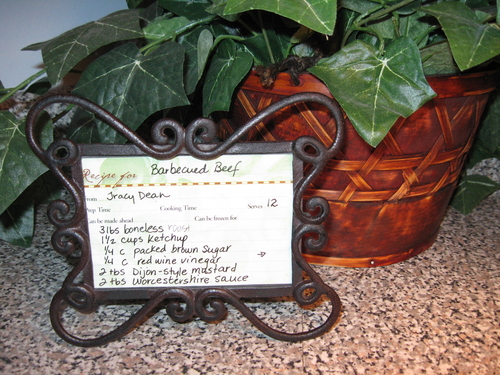 Recipe for Barbecued Beef
From Tracy Dean
Prep Time Cooking Time Serves 12
Can be made ahead Can be frozen for
3lbs boneless roast
1½ cups Ketchup
¼ c packed brown sugar
¼ c red wine vinegar →
2 tbs Dijon-style mustard
2 tbs Worcestershire sauce